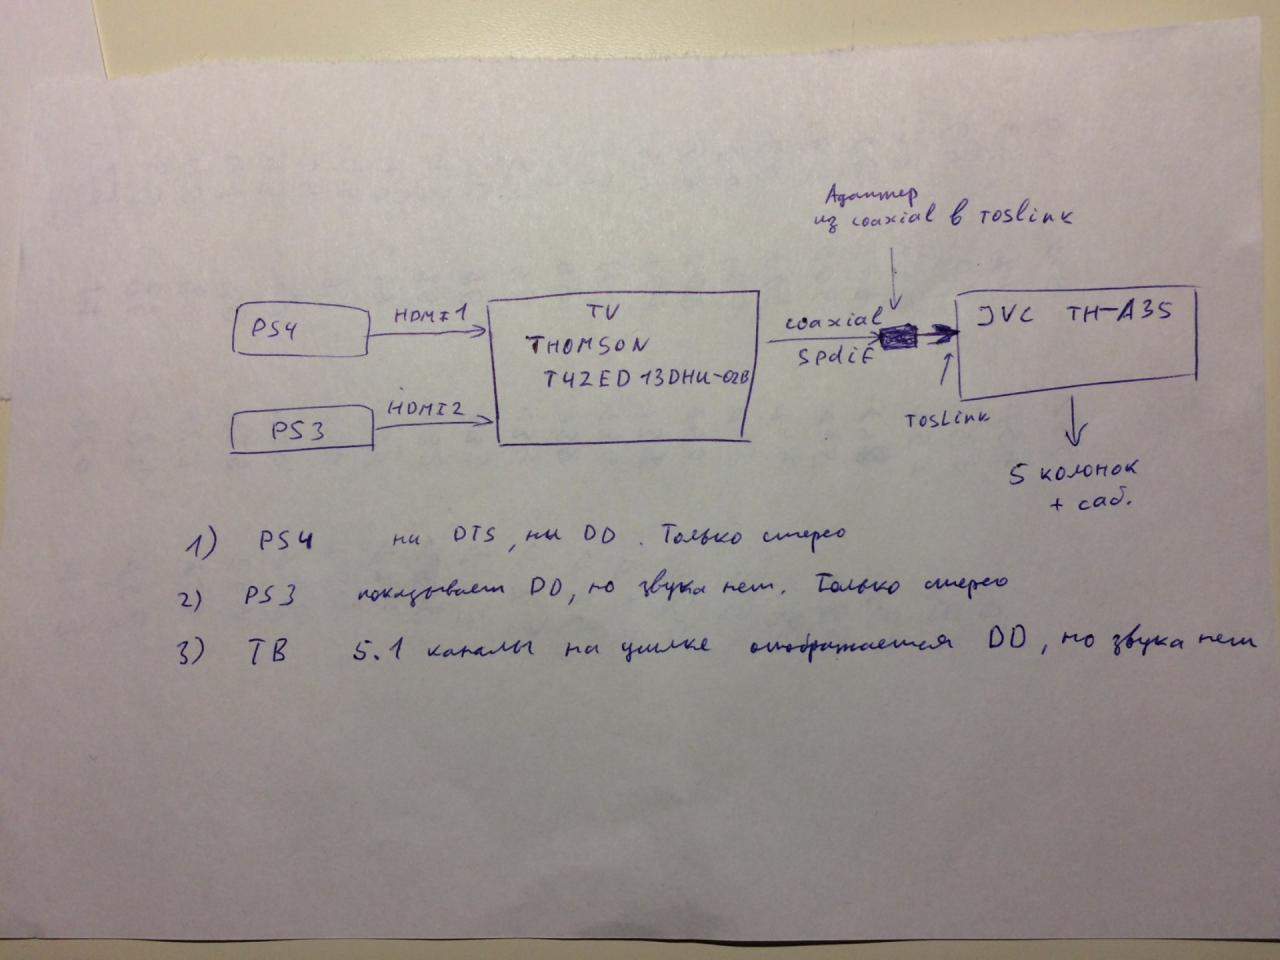 Адаптер
из coaxial в Toslink
PS4
HDMI1
TV
THOMSON
T42ED13DHU-02B
coaxial
SPDIF
JVC TH-A35
PS3
HDMI2
TOSLink
5 колонок
+ саб.
1) PS4 ни DTS, ни DD. Только стерео
2) PS3 показывает DD, но звука нет. Только стерео
3) ТВ 5.1 каналы на усилке отображается DD, но звука нет